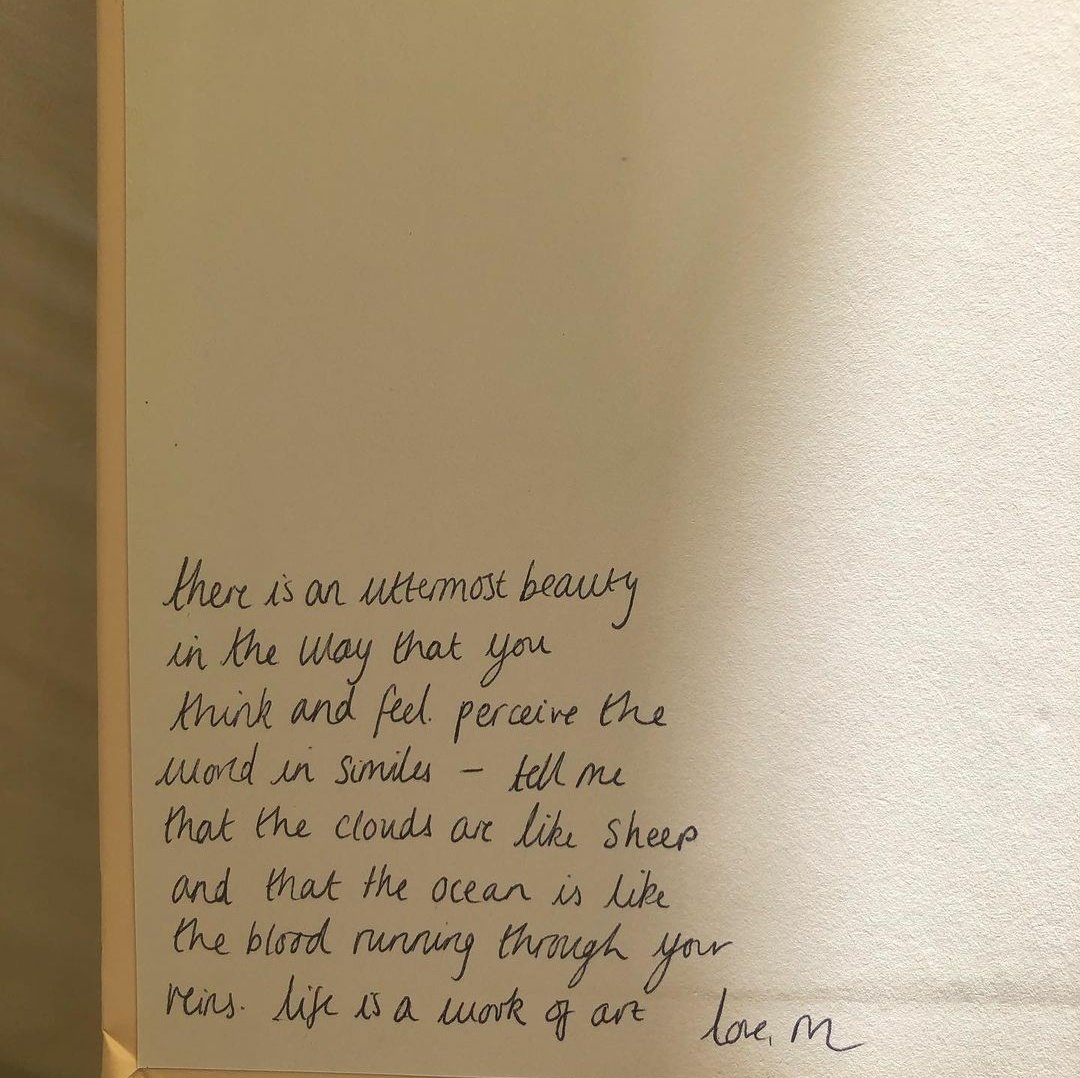 there is an uttermost beauty
in the way that you
think and feel. perceive the
world in similes – tell me
that the clouds are like sheep
and that the ocean is like
the blood running through your
veins. life is a work of art
love, M